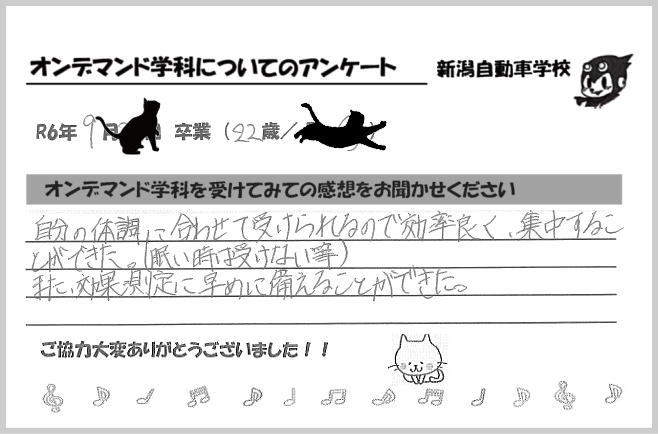 オンデマンド学科についてのアンケート
新潟自動車学校
R6年 9月 卒業 (22歳/
オンデマンド学科を受けてみての感想をお聞かせください
自分の体調に合わせて受けられるので効率良く、集中するこ
とができた。(眠い時は受けない等)
また、効果測定に早めに備えることができた。
ご協力大変ありがとうございました！！